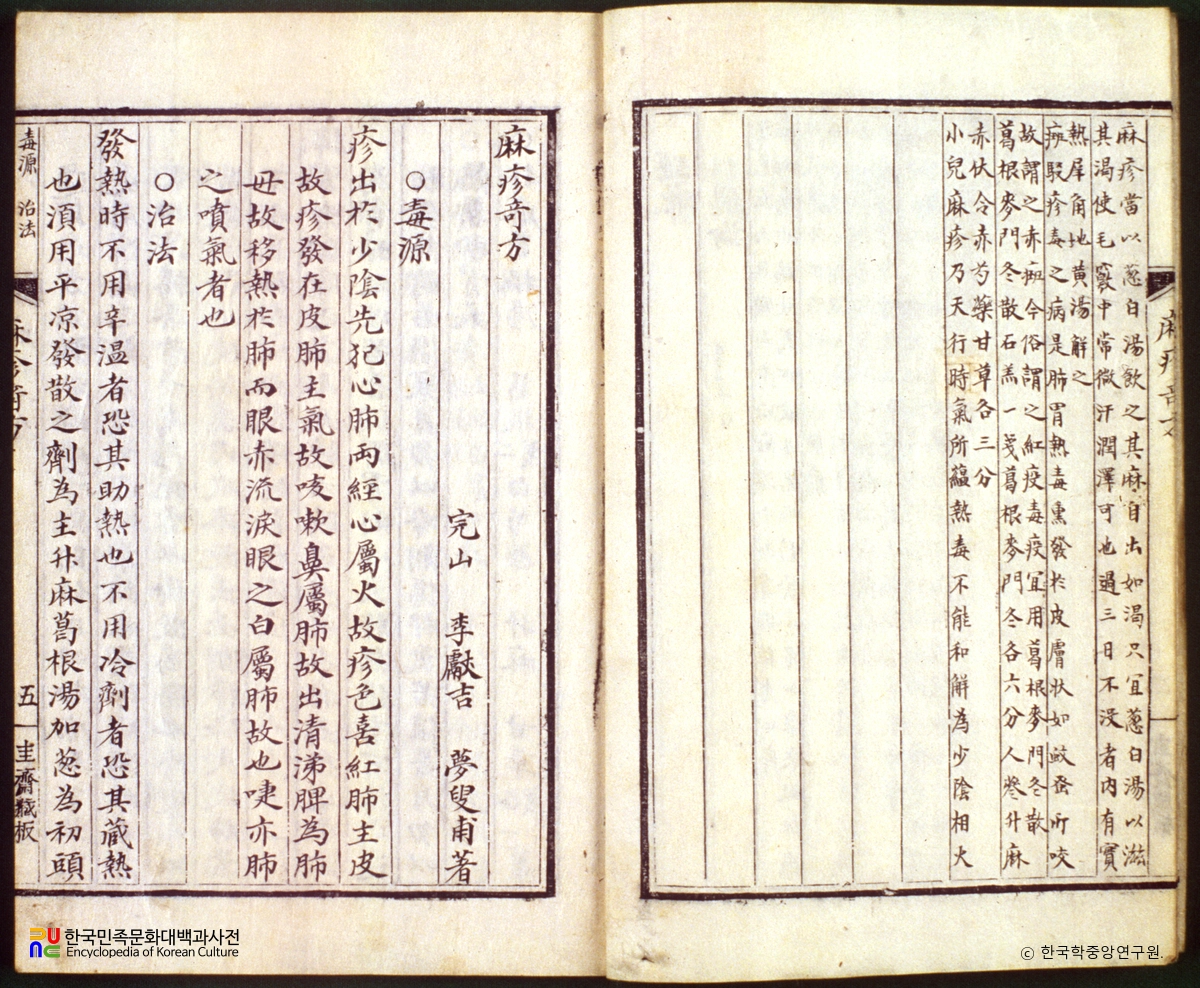 麻疹當以葱白湯飮之其麻自出如渴只宜葱白湯以滋
其渴使毛竅中常微汗潤澤可也過三日不没者內有實
熱犀角地黃湯解之
痎駁疹毒之病是肺胃熱毒熏發於皮膚狀如蚊䖟所咬
故謂之赤痎今俗謂之紅疫毒疫宜用葛根麥門冬散
葛根麥門冬散石羔一戔葛根麥門冬各六分人參升麻
赤伏令赤芍藥甘草各三分
小兒麻疹乃天行時氣所蘊熱毒不能和解為少陰相火
麻疹奇方
麻疹奇方
完山 李獻吉 夢叟甫著
○毒源
疹出於少陰先犯心肺兩經心屬火故疹色喜紅肺主皮
故疹發在皮肺主氣故咳嗽鼻屬肺故出清涕脾為肺
母故移熱於肺而眼赤流淚眼之白屬肺故也嚏亦肺
之噴氣者也
○治法
發熱時不用辛溫者恐其助熱也不用冷劑者恐其藏熱
也須用平凉發散之劑為主升麻葛根湯加葱為初頭
毒源 治法
麻疹奇方
五
圭齋藏板
한국민족문화대백과사전
Encyclopedia of Korean Culture
ⓒ 한국학중앙연구원.